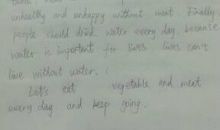 unhealthy and unhappy without meat. Finally
people should drink water every day, because
water is important for lives. lives can't
live without water.
Let's eat vegetable and meat
every day and keep going.